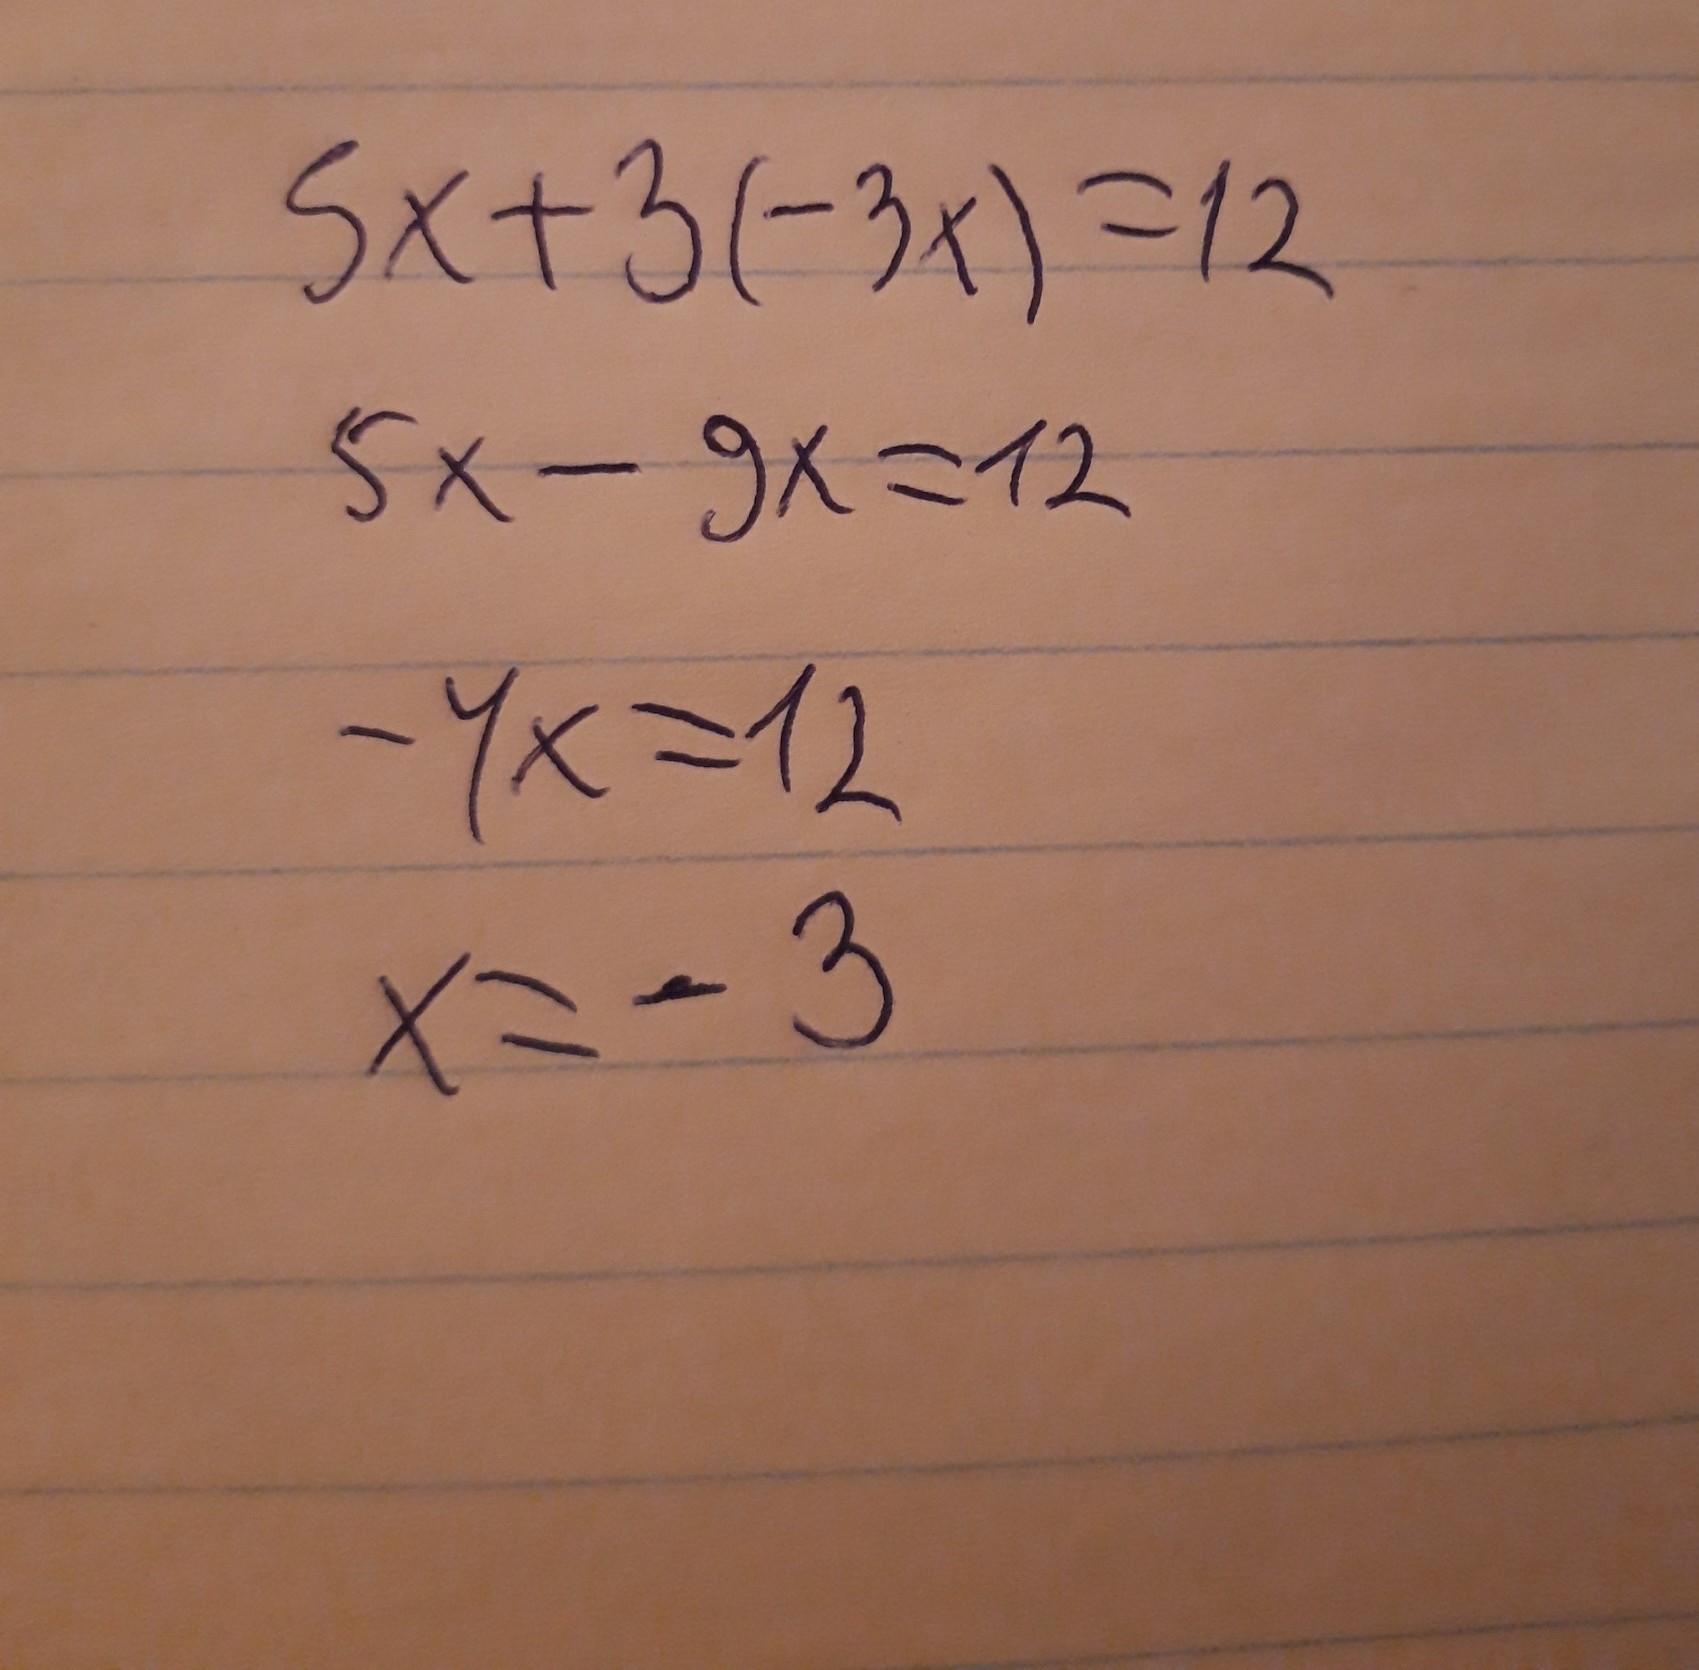 5x+3(-3x)=12
5x-9x=12
-4x=12
x=-3